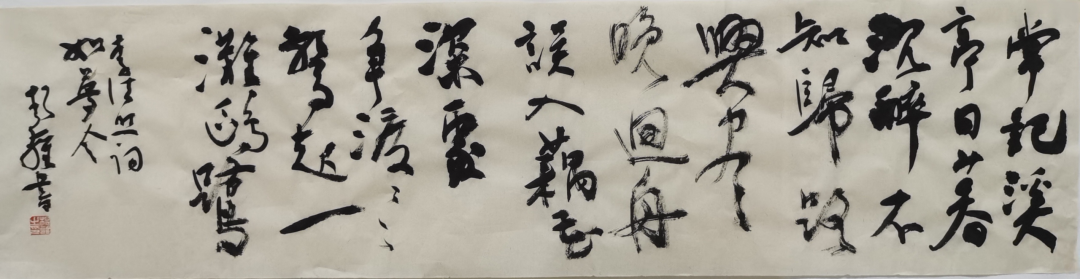 常記溪
亭日暮
沉醉不
知歸路
興盡
晚迴舟
誤入藕花
深處
爭渡〻〻
驚起一
灘鷗鷺
李清照詞
如夢令
書